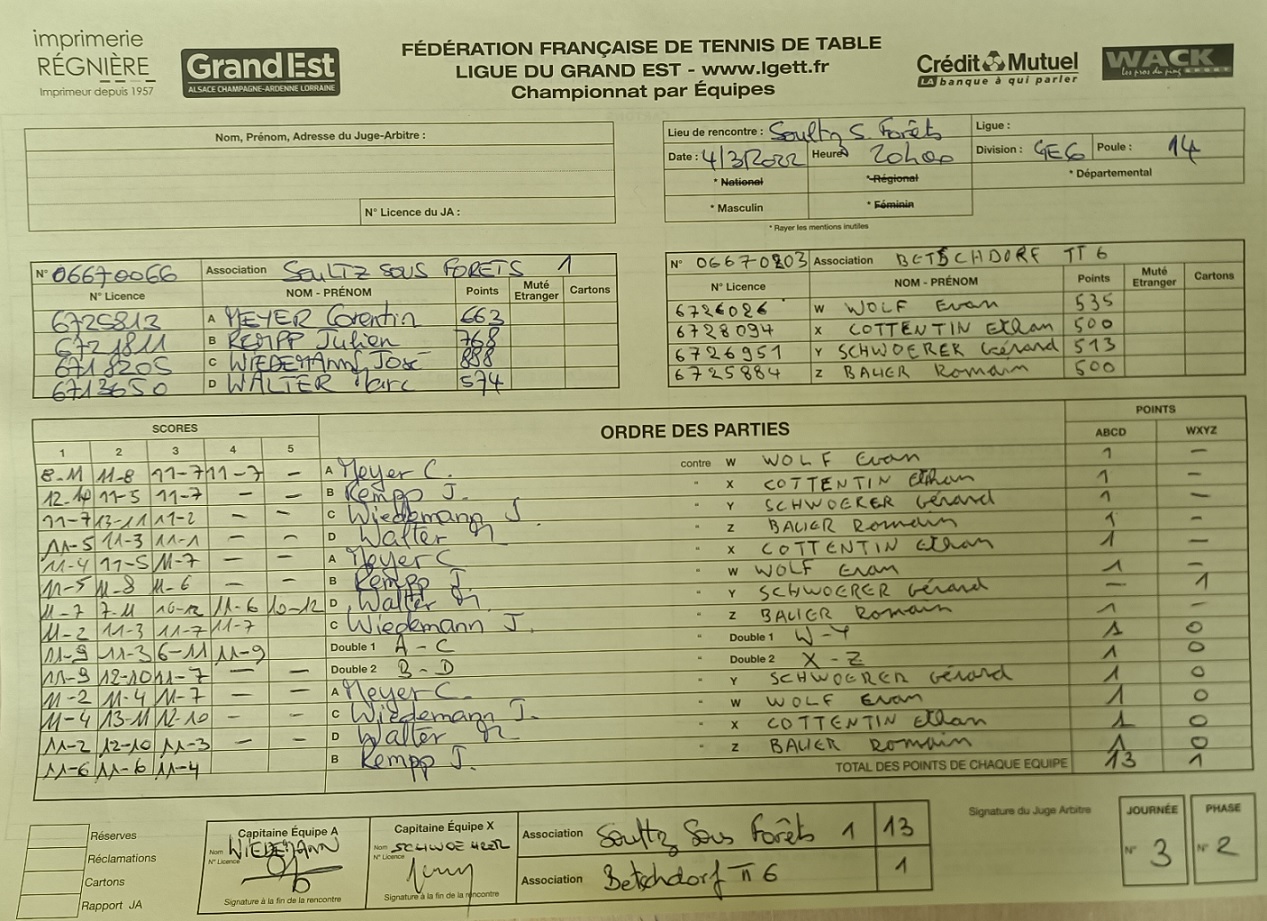 imprimerie
RÉGNIÈRE
Imprimeur depuis 1957
Grand Est
ALSACE CHAMPAGNE-ARDENNE LORRAINE
FÉDÉRATION FRANÇAISE DE TENNIS DE TABLE
LIGUE DU GRAND EST - www.lgett.fr
Championnat par Équipes
Crédit Mutuel
LA banque à qui parler
WACK
Les pros du ping SPORT
Nom, Prénom, Adresse du Juge-Arbitre :
N° Licence du JA :
Lieu de rencontre : Soultz S. Forêts Ligue :
Date : 4/3/2022 Heure 20h00 Division : GE6 Poule : 14
* National * Régional * Départemental
* Masculin * Féminin
* Rayer les mentions inutiles
N° 06670066 Association SOULTZ SOUS FORETS 1
N° Licence NOM - PRÉNOM Points Muté Etranger Cartons
6725813 A MEYER Corentin 663
6721811 B KEMPP Julien 768
6718205 C WIEDEMANN José 888
6713650 D WALTER Marc 574
N° 06670203 Association BETSCHDORF TT 6
N° Licence NOM - PRÉNOM Points Muté Etranger Cartons
6726026 W WOLF Evan 535
6728094 X COTTENTIN Ethan 500
6726951 Y SCHWOERER Gérard 513
6725884 Z BAUER Romain 500
SCORES ORDRE DES PARTIES POINTS
1 2 3 4 5 ABCD WXYZ
8-11 11-8 11-7 11-7 - A Meyer C. contre W WOLF Evan 1 -
12-10 11-5 11-7 - - B Kempp J. " X COTTENTIN Ethan 1 -
11-7 13-11 11-2 - - C Wiedemann J. " Y SCHWOERER Gérard 1 -
11-5 11-3 11-1 - - D Walter M " Z BAUER Romain 1 -
11-4 11-5 11-7 - - A Meyer C " X COTTENTIN Ethan 1 -
11-5 11-8 11-6 - - B Kempp J " W WOLF Evan 1 -
11-7 7-11 10-12 11-6 10-12 D Walter M. " Y SCHWOERER Gérard - 1
11-2 11-3 11-7 11-7 C Wiedemann J. " Z BAUER Romain 1 -
11-9 11-3 6-11 11-9 Double 1 A - C " Double 1 W-Y 1 0
11-9 12-10 11-7 - - Double 2 B - D " Double 2 X - Z 1 0
11-2 11-4 11-7 - - A Meyer C. " Y SCHWOERER Gérard 1 0
11-4 13-11 12-10 - - C Wiedemann J. " W WOLF Evan 1 0
11-2 12-10 11-3 - - D Walter M " X COTTENTIN Ethan 1 0
11-6 11-6 11-4 B Kempp J. " Z BAUER Romain 1 0
TOTAL DES POINTS DE CHAQUE EQUIPE 13 1
Réserves
Réclamations
Cartons
Rapport JA
Capitaine Équipe A
Nom WIEDEMANN
N° Licence
Signature à la fin de la rencontre
Capitaine Équipe X
Nom SCHWOERER
N° Licence
Signature à la fin de la rencontre
Association Soultz Sous Forêts 1 13
Association Betschdorf TT 6 1
Signature du Juge Arbitre
JOURNÉE
N° 3
PHASE
N° 2